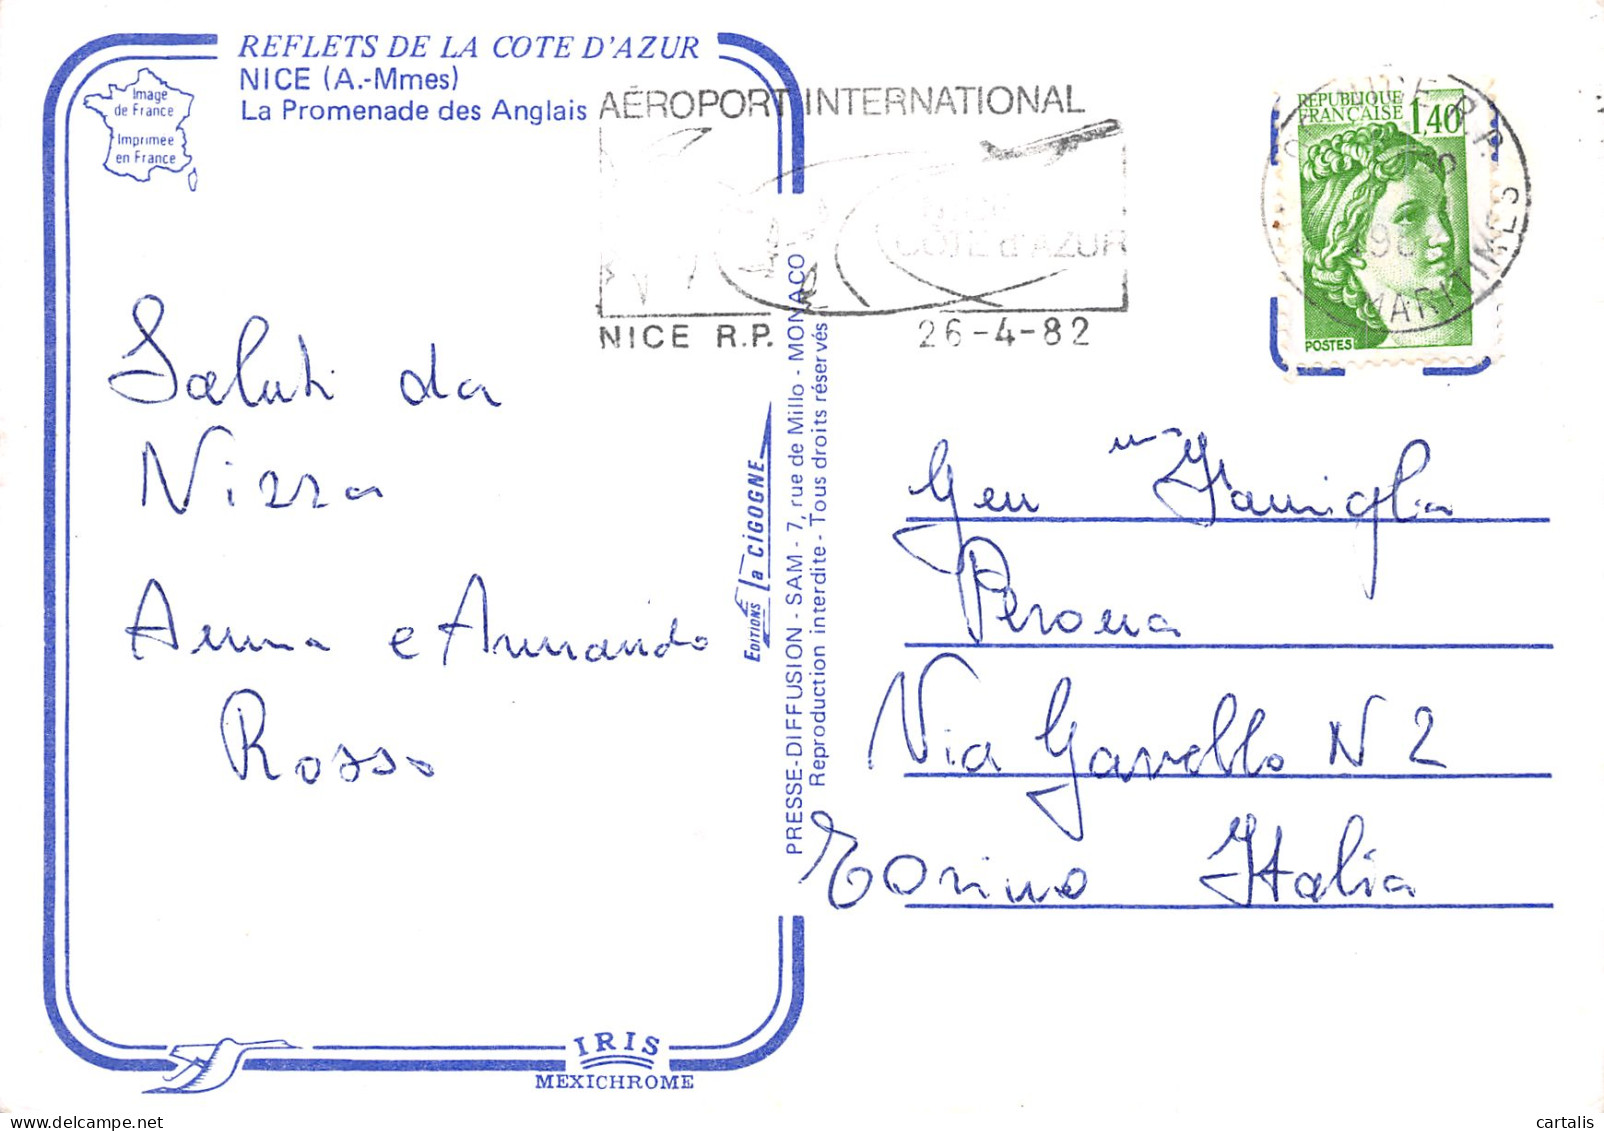 REFLETS DE LA COTE D'AZUR
NICE (A.-Mmes)
La Promenade des Anglais
Image
de France
Imprimée
en France
AÉROPORT INTERNATIONAL
CÔTE d'AZUR
NICE R.P. 26-4-82
RÉPUBLIQUE
FRANÇAISE 1,40
POSTES
NICE R.P.
MARITIMES
Saluti da
Nizza
Anna e Armando
Rosso
EDITIONS la CIGOGNE
PRESSE-DIFFUSION - SAM - 7, rue de Millo - MONACO
Reproduction interdite - Tous droits réservés
Gen Famiglia
Perona
Via Gavello N 2
Torino Italia
IRIS
MEXICHROME
cartalis